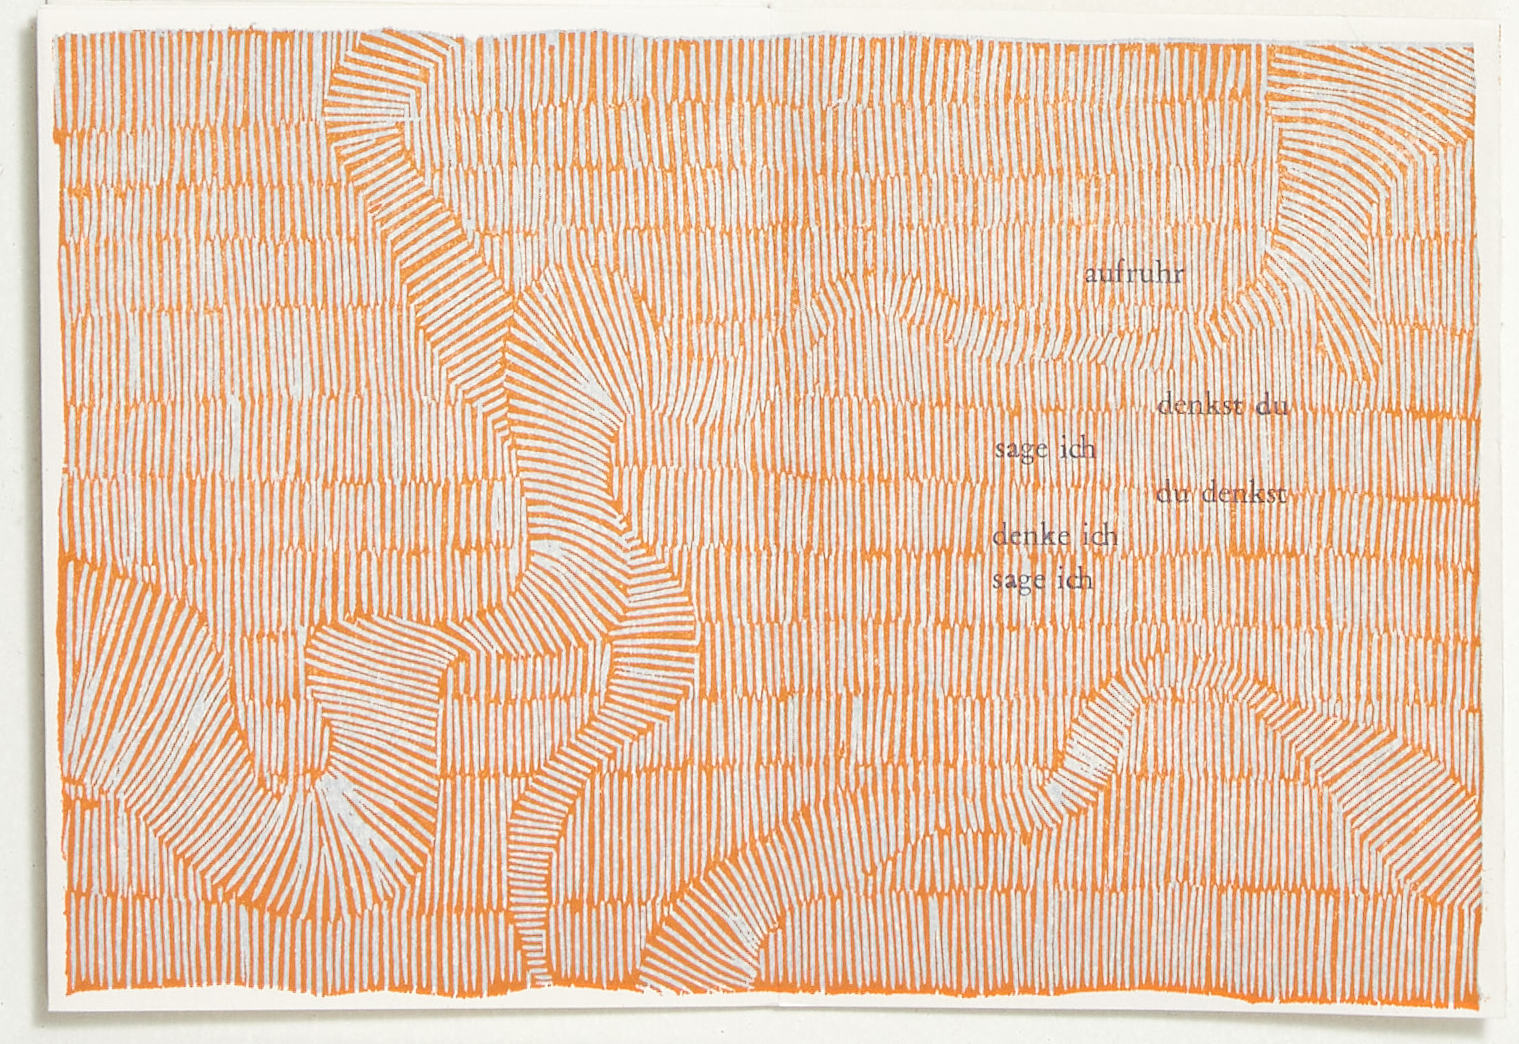 aufruhr
denkst du
sage ich
du denkst
denke ich
sage ich